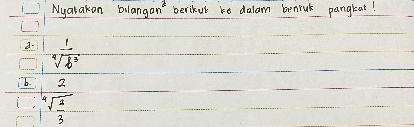 Nyatakan bilangan² berikut ke dalam bentuk pangkat!
a. 1
⁴√6³
b. 2
⁴√2
3